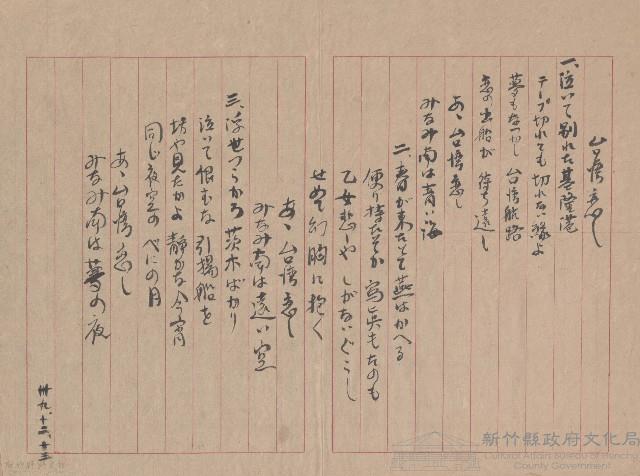 台湾恋し
一、泣いて別れた基隆港
テープ切れても切れない縁よ
夢もなつかし台湾航路
恋の出船が待ち遠し
あゝ台湾恋し
みなみ南は青い海
二、春が来たとて燕はかへる
便り持たせか寫眞もたのも
乙女悲しや しがないぐこし
せめて幻胸に抱く
あゝ台湾恋し
みなみ南は遠い空
三、浮世つらかろ茨木ばかり
泣いて恨むな引揚船を
坊や見たかよ静かな今宵
同じ夜空のべにの月
あゝ台湾恋し
みなみ南は夢の夜
卅九、十二、廿三
新竹縣政府文化局
Cultural Affairs Bureau of Hsinchu
County Government